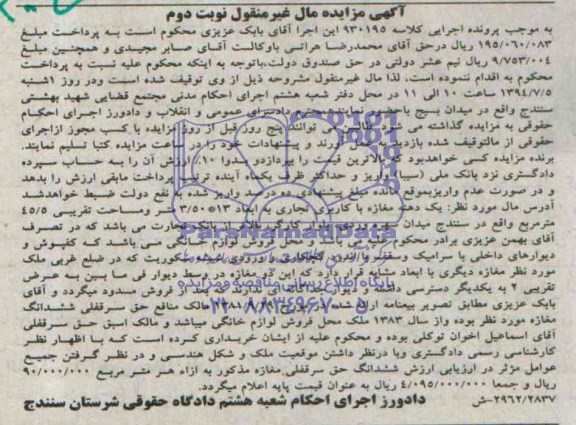 آگهی مزایده مال غیرمنقول نوبت دوم
به موجب پرونده اجرایی کلاسه ۹۳۰۱۹۵ این اجرا آقای بابک عزیزی محکوم است به پرداخت مبلغ
۱۹۵/۰۶۰/۰۸۳ ریال درحق آقای محمدرضا هراتی باوکالت آقای صابر مجیدی و همچنین مبلغ
۹/۷۵۳/۰۰۴ ریال نیم عشر دولتی در حق صندوق دولت،باتوجه به اینکه محکوم علیه نسبت به پرداخت
محکوم به اقدام ننموده است، لذا مال غیرمنقول مشروحه ذیل از وی توقیف شده است ودر روز ۱شنبه
۱۳۹۴/۷/۵ ساعت ۱۰ الی ۱۱ در محل دفتر شعبه هشتم اجرای احکام مدنی مجتمع قضایی شهید بهشتی
سنندج واقع در میدان بسیج باحضور نماینده محترم دادسرای عمومی و انقلاب و دادورز اجرای احکام
حقوقی به مزایده گذاشته می شود. طالبین می توانند پنج روز قبل از روز مزایده با کسب مجوز ازاجرای
حقوقی از مالتوقیف شده بازدید به عمل آورند و پیشنهادات خود را در ساعت مزایده کتبا تسلیم نمایند.
برنده مزایده کسی خواهدبود که بالاترین قیمت را بپردازدو بدوا ۱۰٪ ارزش آن را به حساب سپرده
دادگستری نزد بانک ملی (سیبا) واریز و حداکثر ظرف یکماه آینده ترتیب پرداخت مابقی ارزش را بدهد
و در صورت عدم واریزبموقع مانده مبلغ پیشنهادی ده درصد واریز شده به نفع دولت ضبط خواهدشد
آدرس مال مورد نظر: یک دهنه مغازه با کاربری تجاری به ابعاد ۱۳×۳/۵۰ متر ومساحت تقریبی ۴۵/۵
مترمربع واقع در سنندج میدان بانک تجارت می باشد که در تصرف
آقای بهمن عزیزی برادر محکوم علیه می باشد و محل فروش لوازم خانگی می باشد که کفپوش و
دیوارهای داخلی با سرامیک وسقف شیشه سکوریت که در ضلع غربی ملک
مورد نظر مغازه دیگری با ابعاد مشابه قرار دارد که این دو مغازه در وسط دیوار فی ما بین به عرض
تقریبی ۲ به یکدیگر دسترسی داشته بعد از فروش مسدود میگردد و آقای
بابک عزیزی مطابق تصویر بیعنامه ارائه شده مالک منافع حق سرقفلی ششدانگ
مغازه مورد نظر بوده واز سال ۱۳۸۳ ملک محل فروش لوازم خانگی میباشد و مالک اسبق حق سرقفلی
آقای اسماعیل اخوان توکلی بوده و محکوم علیه از ایشان خریداری کرده است که با اظهار نظر
کارشناسی رسمی دادگستری وبا درنظر داشتن موقعیت ملک و شکل هندسی و در نظر گرفتن جمیع
عوامل مژثر در ارزیابی ارزش ششدانگ حق سرقفلی،مغازه مذکور به ازاء هر متر مربع ۹۰/۰۰۰/۰۰۰
ریال و جمعا ۴/۰۹۵/۰۰۰/۰۰۰ ریال به عنوان قیمت پایه اعلام میگردد.
۲۹۶۲/۲۸۳۷-ش دادورز اجرای احکام شعبه هشتم دادگاه حقوقی شرستان سنندج
ParsNamadData
پایگاه اطلاع رسانی مناقصه و مزایده
۰۲۱-۸۸۳۴۹۶۷۰-۵